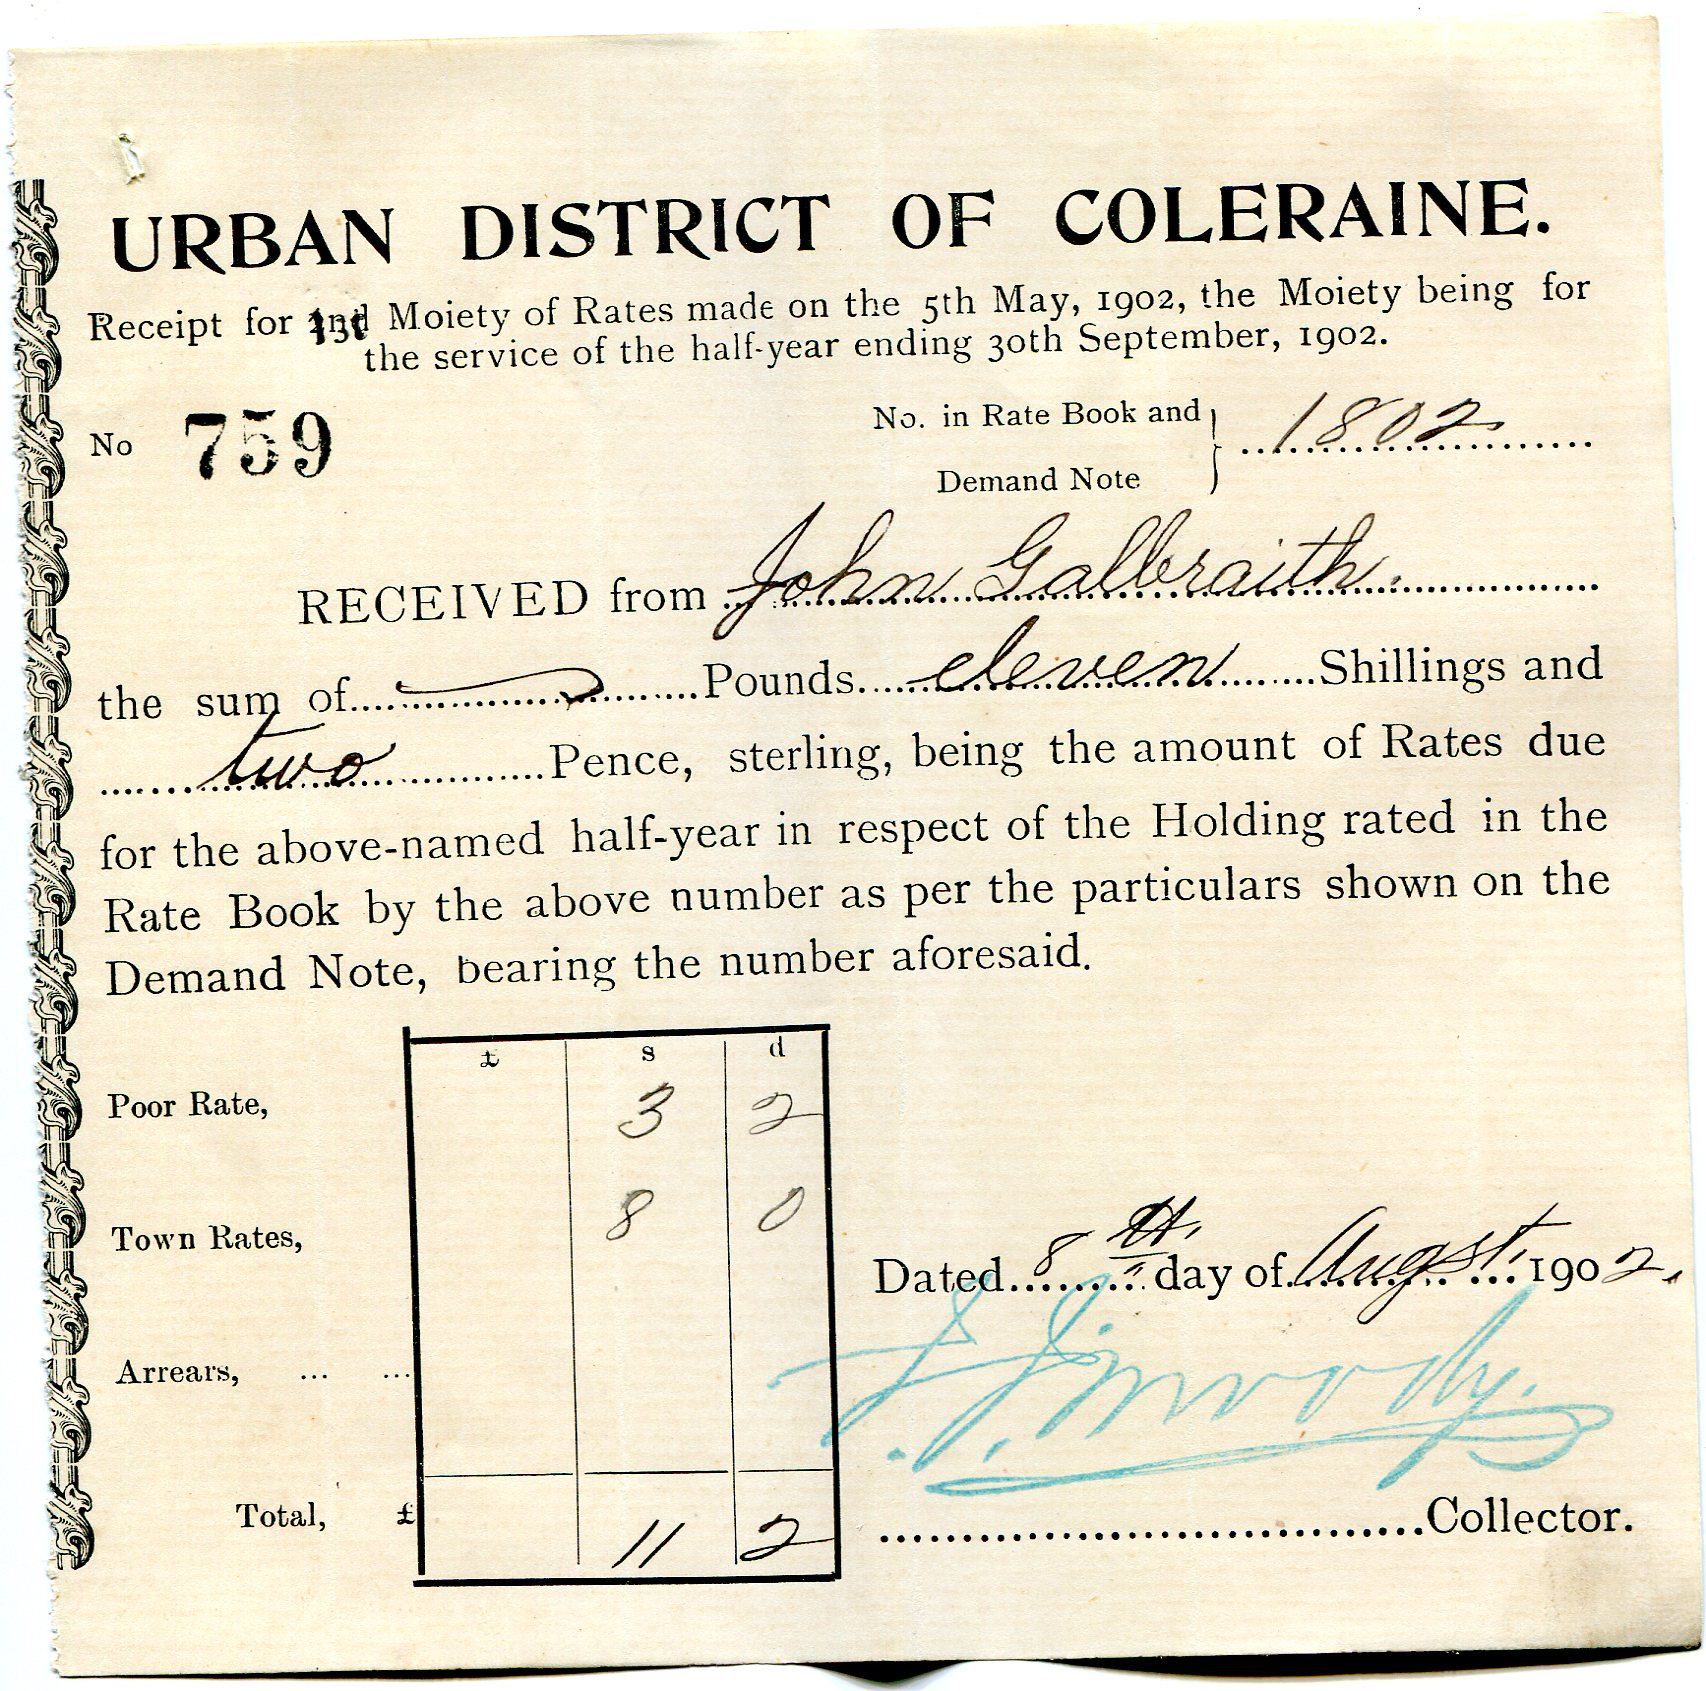 URBAN DISTRICT OF COLERAINE.
Receipt for Moiety of Rates made on the 5th May, 1902, the Moiety being for
the service of the half-year ending 30th September, 1902.
No. in Rate Book and
No 759 1802
Demand Note
RECEIVED from John Galbraith
the sum of Pounds eleven Shillings and
two Pence, sterling, being the amount of Rates due
for the above-named half-year in respect of the Holding rated in the
Rate Book by the above number as per the particulars shown on the
Demand Note, bearing the number aforesaid.
£ s d
Poor Rate, 3 2
Town Rates, 8 0
Dated 8th day of Augst. 1902.
Arrears, ... ...
Total, £ 11 2
Collector.